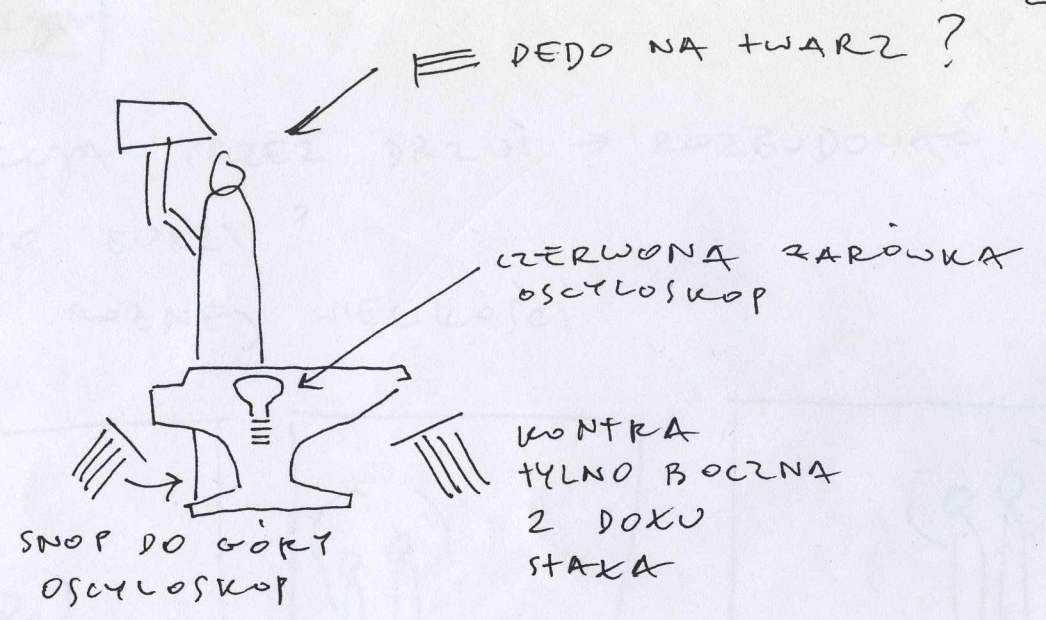 DEDO NA TWARZ ?
CZERWONA ŻARÓWKA
OSCYLOSKOP
KONTRA
TYLNO BOCZNA
Z DOŁU
STAŁA
SNOP DO GÓRY
OSCYLOSKOP